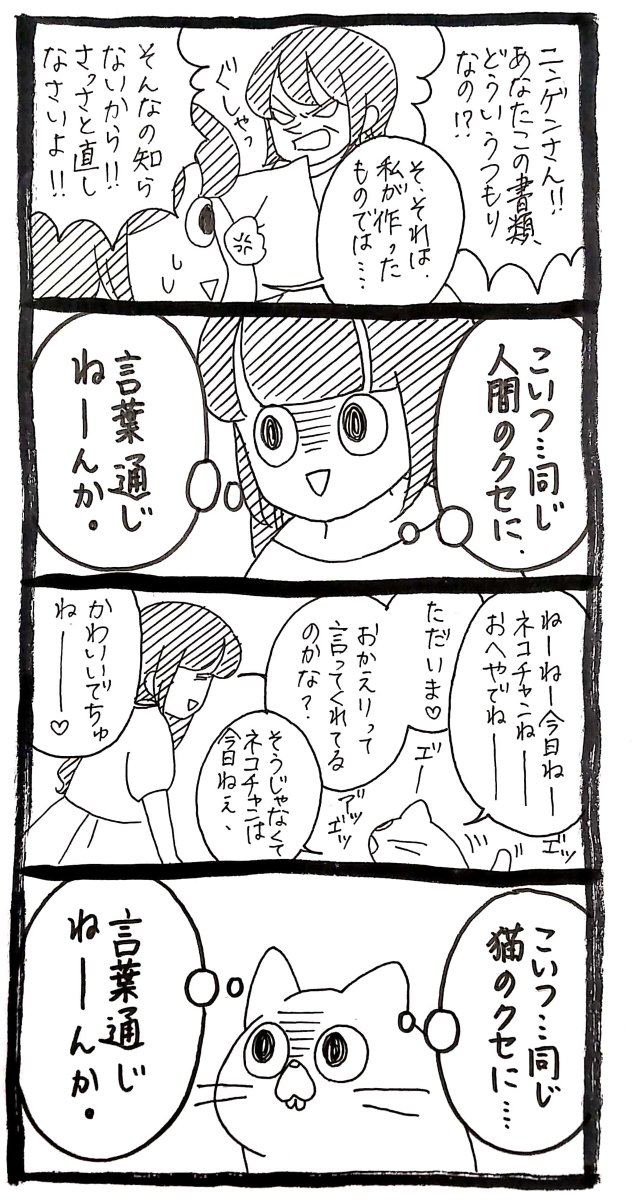 ニンゲンさん!!
あなたこの書類、
どういうつもり
なの!?
そ、それは、
私が作った
ものでは……
ぐしゃっ
そんなの知ら
ないから!!
さっさと直し
なさいよ!!
こいつ…同じ
人間のクセに、
言葉通じ
ねーんか。
ねーねー今日ねー
ネコチャンねー
おへやでねー
エッ
ただいま♡
エー
おかえりって
言ってくれてる
のかな?
アッ
エッ
そうじゃなくて
ネコチャンは
今日ねぇ、
かわいいでちゅ
ねーー♡
こいつ…同じ
猫のクセに…
言葉通じ
ねーんか。